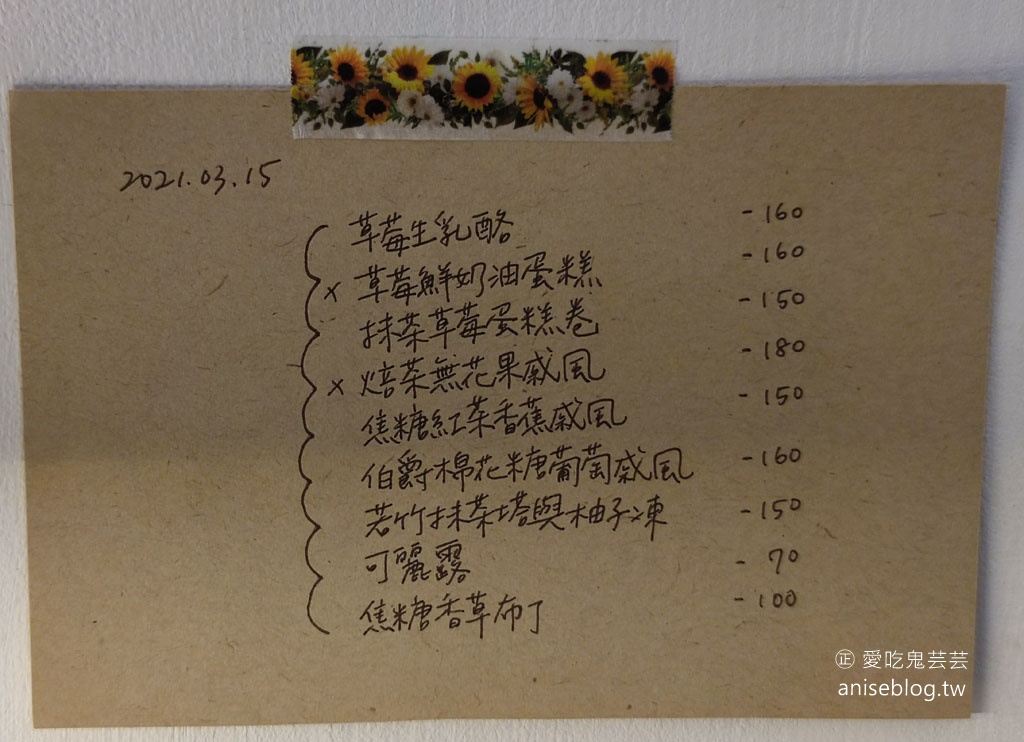 2021.03.15
草莓生乳酪 -160
x 草莓鮮奶油蛋糕 -160
抹茶草莓蛋糕卷 -150
x 焙茶無花果戚風 -180
焦糖紅茶香蕉戚風 -150
伯爵棉花糖葡萄戚風 -160
若竹抹茶塔與柚子凍 -150
可麗露 -70
焦糖香草布丁 -100
正 愛吃鬼芸芸
aniseblog.tw